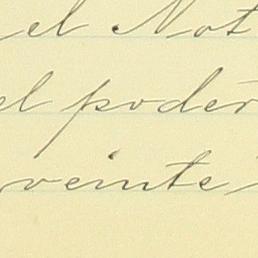 el Not
el poder
veinte